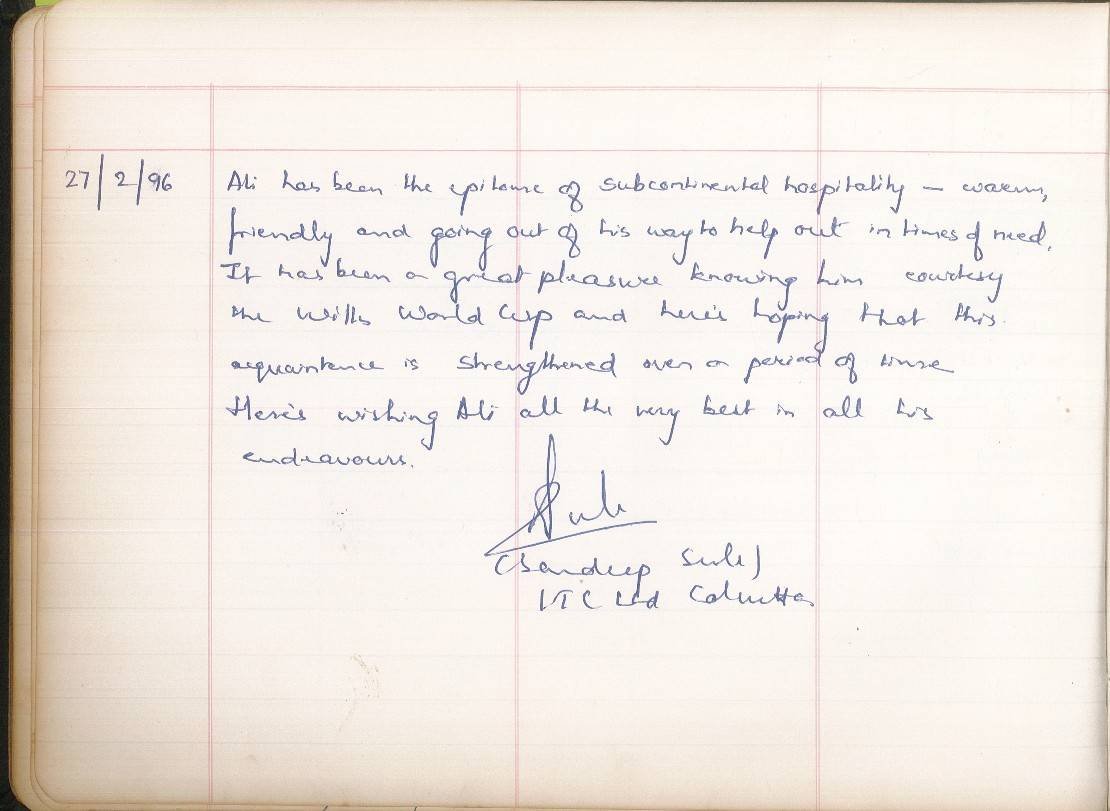 27/2/96 Ali has been the epitome of subcontinental hospitality – warm,
friendly and going out of his way to help out in times of need.
It has been a great pleasure knowing him courtesy
the Wills World Cup and here's hoping that this
acquaintance is strengthened over a period of time
Here's wishing Ali all the very best in all his
endeavours.
(Sandeep Sule)
ITC Ltd Calcutta